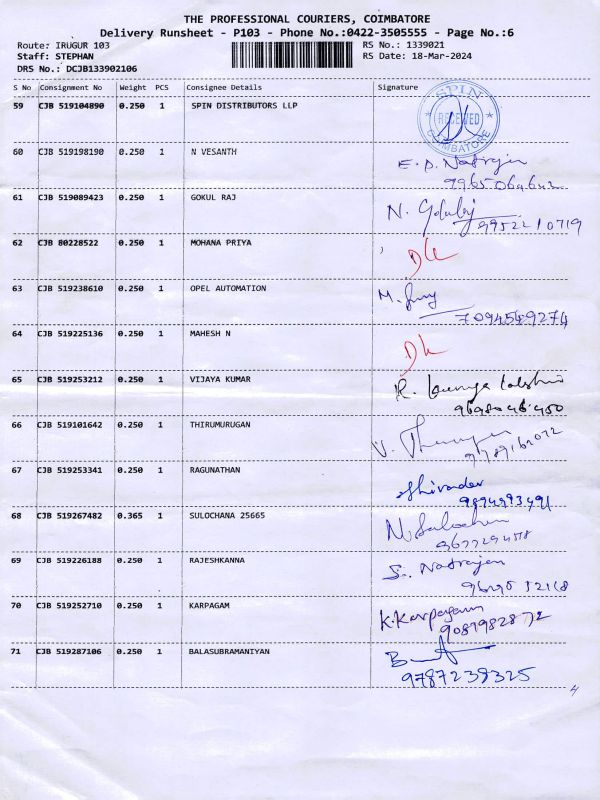 THE PROFESSIONAL COURIERS, COIMBATORE
Delivery Runsheet - P103 - Phone No.:0422-3505555 - Page No.:6
Route: IRUGUR 103
RS No.: 1339021
Staff: STEPHAN
RS Date: 18-Mar-2024
DRS No.: DCJB133902106
S No Consignment No Weight PCS Consignee Details Signature
59 CJB 519104890 0.250 1 SPIN DISTRIBUTORS LLP
SPIN
RECEIVED
COIMBATORE
60 CJB 519198190 0.250 1 N VESANTH
61 CJB 519089423 0.250 1 GOKUL RAJ
9952210719
62 CJB 80228522 0.250 1 MOHANA PRIYA
63 CJB 519238610 0.250 1 OPEL AUTOMATION
7094549274
64 CJB 519225136 0.250 1 MAHESH N
65 CJB 519253212 0.250 1 VIJAYA KUMAR
66 CJB 519101642 0.250 1 THIRUMURUGAN
67 CJB 519253341 0.250 1 RAGUNATHAN
9894993491
68 CJB 519267482 0.365 1 SULOCHANA 25665
69 CJB 519226188 0.250 1 RAJESHKANNA
S. Natrajan
70 CJB 519252710 0.250 1 KARPAGAM
K.Karpagam
9087982872
71 CJB 519287106 0.250 1 BALASUBRAMANIYAN
9787239325
4